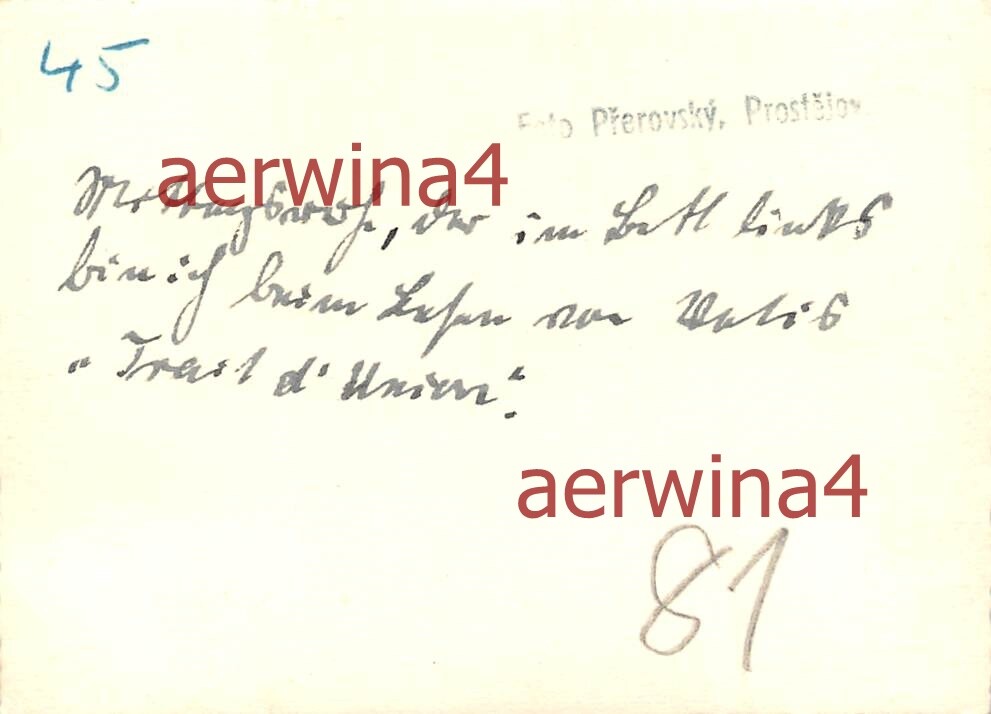 45
Foto Přerovský, Prostějov.
aerwina4
Mittagsruhe, der im Bett links
bin ich beim Lesen von Vatis
"Trait d'Union".
aerwina4
81